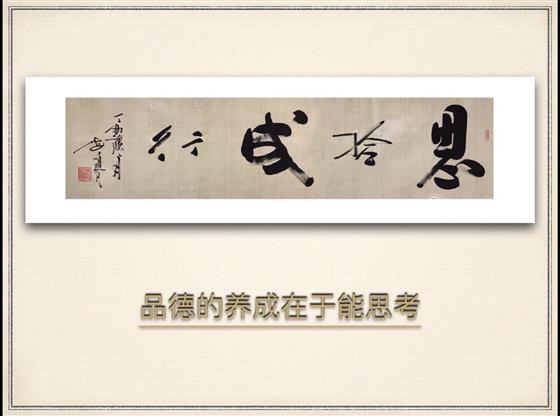 行成於思
品德的养成在于能思考